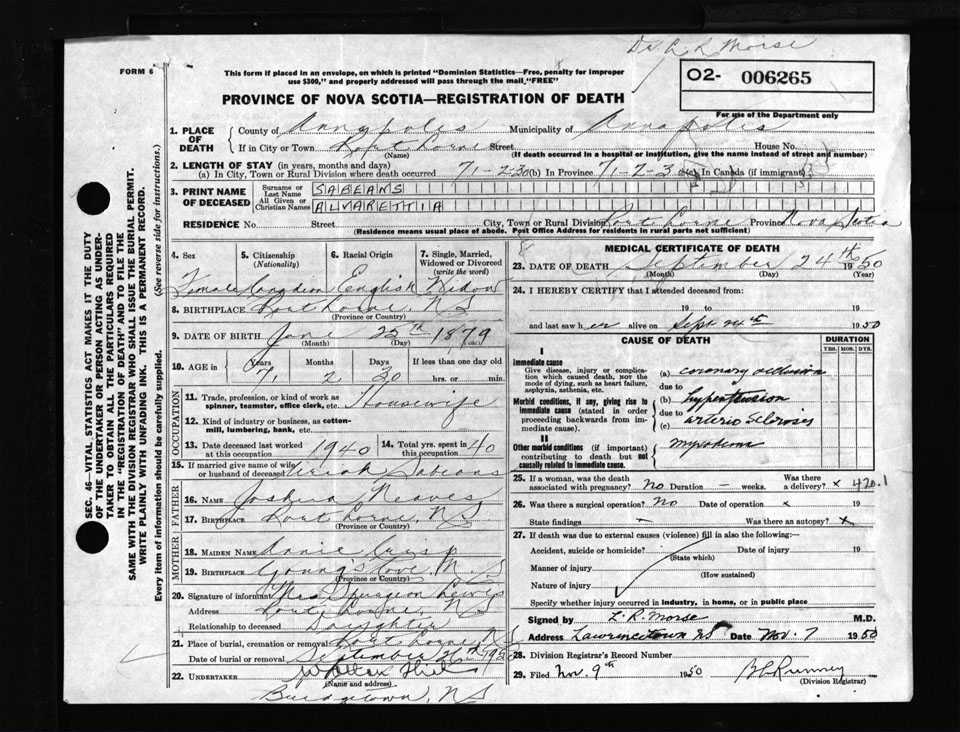 Dr L R Morse
FORM 6
This form if placed in an envelope, on which is printed "Dominion Statistics—Free, penalty for improper
use $300," and properly addressed will pass through the mail "FREE"
O2- 006265
PROVINCE OF NOVA SCOTIA—REGISTRATION OF DEATH
For use of the Department only
1. PLACE OF DEATH
County of Annapolis Municipality of Annapolis
If in City or Town Port Lorne Street House No.
(Name) (If death occurred in a hospital or institution, give the name instead of street and number)
2. LENGTH OF STAY (in years, months and days)
(a) In City, Town or Rural Division where death occurred 71-2-30 (b) In Province 71-2-30 (c) In Canada (if immigrant)
3. PRINT NAME OF DECEASED
Surname or Last Name SABEANS
All Given or Christian Names ALVARETTIA
RESIDENCE No. Street City, Town or Rural Division Port Lorne Province Nova Scotia
(Residence means usual place of abode. Post Office Address for residents in rural parts not sufficient)
4. Sex
5. Citizenship (Nationality)
6. Racial Origin
7. Single, Married, Widowed or Divorced (write the word)
Female Canadian English Widow
8. BIRTHPLACE Port Lorne, NS
(Province or Country)
9. DATE OF BIRTH June 25th 1879
(Month) (Day) (Year)
10. AGE in Years Months Days If less than one day old
71 2 30 hrs. or min.
OCCUPATION
11. Trade, profession, or kind of work as spinner, teamster, office clerk, etc. Housewife
12. Kind of industry or business, as cotton-mill, lumbering, bank, etc.
13. Date deceased last worked at this occupation 1940
14. Total yrs. spent in this occupation 40
15. If married give name of wife or husband of deceased Uriah Sabeans
FATHER
16. Name Joshua Neaves
17. BIRTHPLACE Port Lorne, NS
(Province or Country)
MOTHER
18. MAIDEN NAME Annie Crisp
19. BIRTHPLACE Youngs Cove, N.S
(Province or Country)
20. Signature of informant Mrs Spurgeon Lewis
Address Port Lorne, NS
Relationship to deceased Daughter
21. Place of burial, cremation or removal Port Lorne NS
Date of burial or removal September 1950
22. UNDERTAKER
(Name and address)
Bridgetown, NS
MEDICAL CERTIFICATE OF DEATH
23. DATE OF DEATH September 24th 1950
(Month) (Day) (Year)
24. I HEREBY CERTIFY that I attended deceased from:
19 to 19
and last saw her alive on Sept 24th 1950
CAUSE OF DEATH
DURATION
YRS. MOS. DYS.
I
Immediate cause
Give disease, injury or complication which caused death, not the mode of dying, such as heart failure, asphyxia, asthenia, etc.
(a) coronary occlusion
due to
Morbid conditions, if any, giving rise to immediate cause (stated in order proceeding backwards from immediate cause).
(b) hypertension
due to
(c) arterio Sclerosis
II
Other morbid conditions (if important) contributing to death but not causally related to immediate cause.
25. If a woman, was the death associated with pregnancy? No Duration - weeks. Was there a delivery? x 420.1
26. Was there a surgical operation? No Date of operation x
State findings - Was there an autopsy? x
27. If death was due to external causes (violence) fill in also the following:—
Accident, suicide or homicide? Date of injury 19
(State which)
Manner of injury
(How sustained)
Nature of injury
Specify whether injury occurred in industry, in home, or in public place
Signed by L. R. Morse M.D.
Address Lawrencetown NS Date Nov. 7 1950
28. Division Registrar's Record Number
29. Filed Nov. 9th 1950
(Division Registrar)
SEC. 46—VITAL STATISTICS ACT MAKES IT THE DUTY
OF THE UNDERTAKER OR PERSON ACTING AS UNDER-
TAKER TO OBTAIN ALL THE PARTICULARS REQUIRED
IN THE "REGISTRATION OF DEATH" AND TO FILE THE
SAME WITH THE DIVISION REGISTRAR WHO SHALL ISSUE THE BURIAL PERMIT.
WRITE PLAINLY WITH UNFADING INK. THIS IS A PERMANENT RECORD.
Every item of information should be carefully supplied. (See reverse side for instructions.)